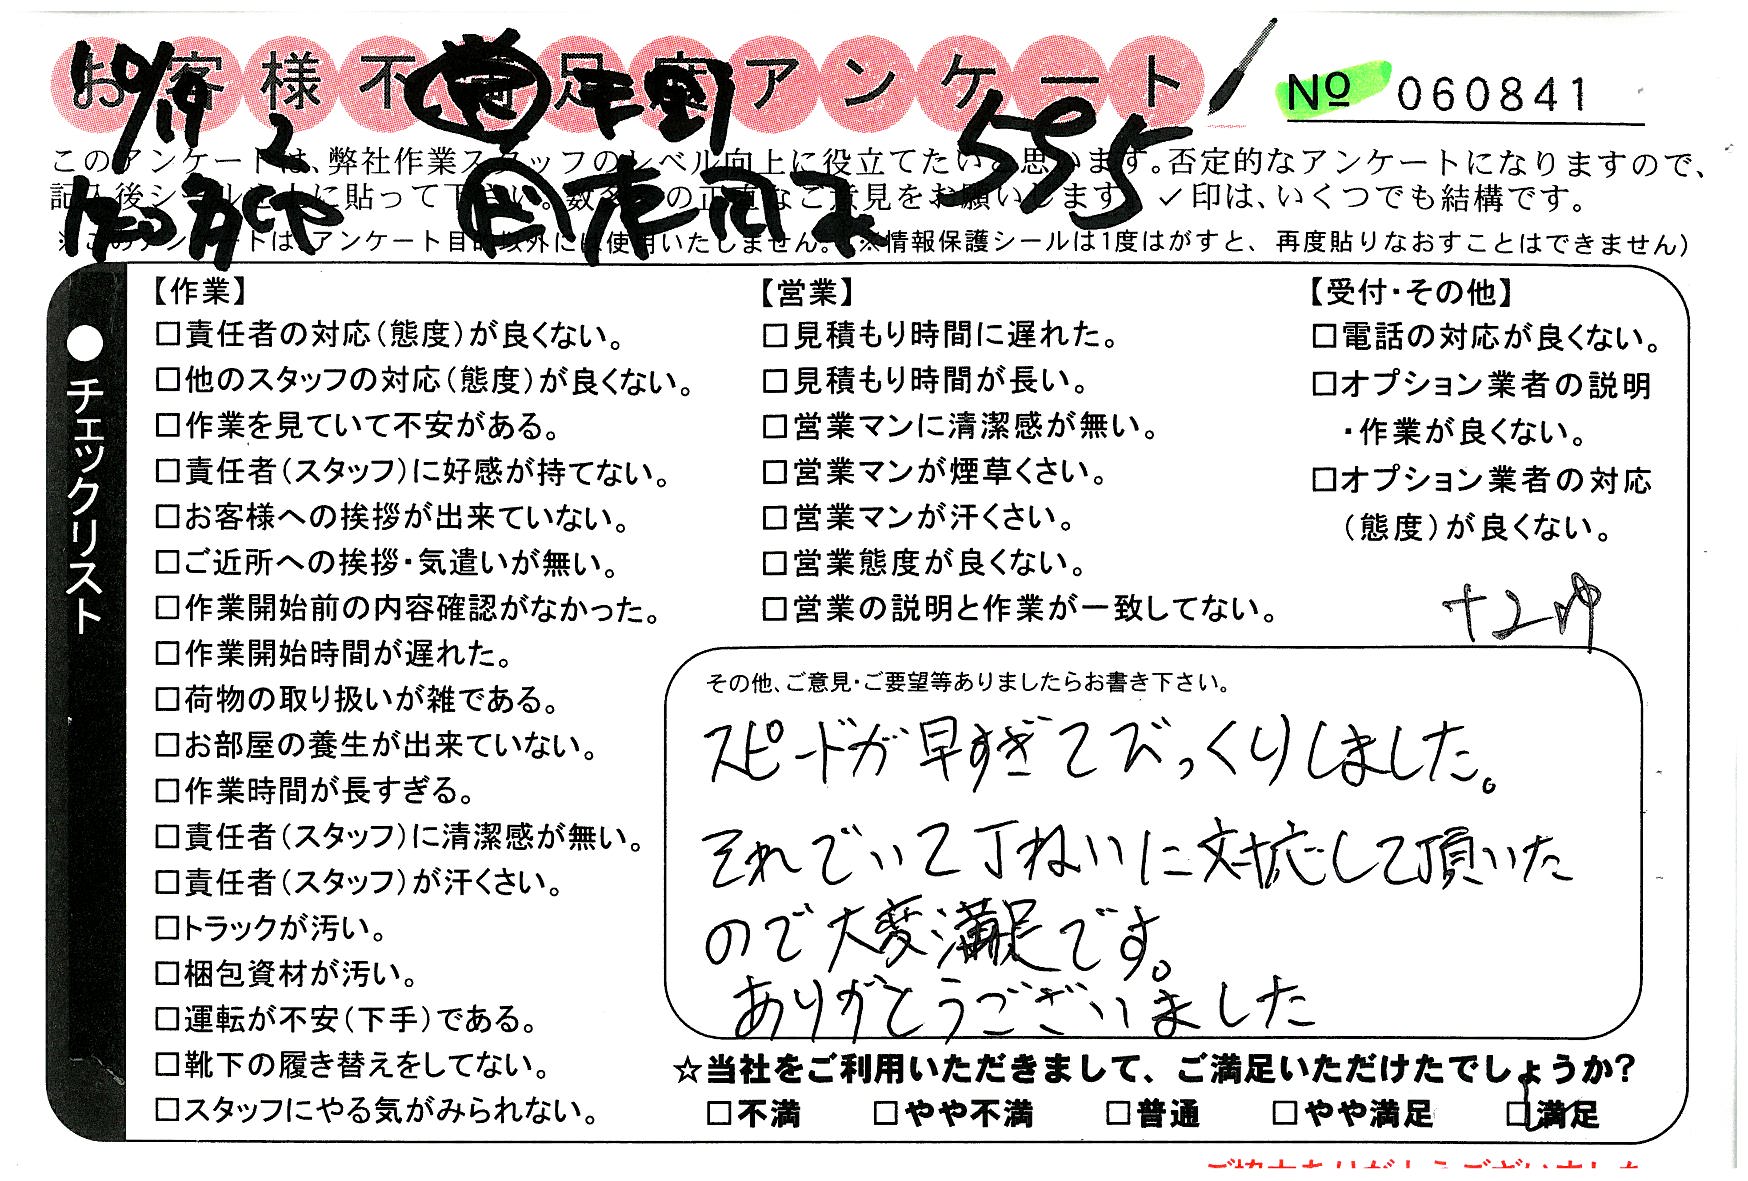 お客様不満足度アンケート
№ 060841
10/18
2
595
このアンケートは、弊社作業スタッフのレベル向上に役立てたいと思います。否定的なアンケートになりますので、
記入後シールを上に貼って下さい。数多くの正直なご意見をお願いします。✓印は、いくつでも結構です。
※このアンケートは、アンケート目的以外には使用いたしません。（※情報保護シールは1度はがすと、再度貼りなおすことはできません）
●チェックリスト
【作業】
□責任者の対応（態度）が良くない。
□他のスタッフの対応（態度）が良くない。
□作業を見ていて不安がある。
□責任者（スタッフ）に好感が持てない。
□お客様への挨拶が出来ていない。
□ご近所への挨拶・気遣いが無い。
□作業開始前の内容確認がなかった。
□作業開始時間が遅れた。
□荷物の取り扱いが雑である。
□お部屋の養生が出来ていない。
□作業時間が長すぎる。
□責任者（スタッフ）に清潔感が無い。
□責任者（スタッフ）が汗くさい。
□トラックが汚い。
□梱包資材が汚い。
□運転が不安（下手）である。
□靴下の履き替えをしてない。
□スタッフにやる気がみられない。
【営業】
□見積もり時間に遅れた。
□見積もり時間が長い。
□営業マンに清潔感が無い。
□営業マンが煙草くさい。
□営業マンが汗くさい。
□営業態度が良くない。
□営業の説明と作業が一致してない。
【受付・その他】
□電話の対応が良くない。
□オプション業者の説明
・作業が良くない。
□オプション業者の対応
（態度）が良くない。
その他、ご意見・ご要望等ありましたらお書き下さい。
スピードが早すぎてびっくりしました。
それでいて丁ねいに対応して頂いた
ので大変満足です。
ありがとうございました
☆当社をご利用いただきまして、ご満足いただけたでしょうか?
□不満 □やや不満 □普通 □やや満足 □満足
ご協力ありがとうございました